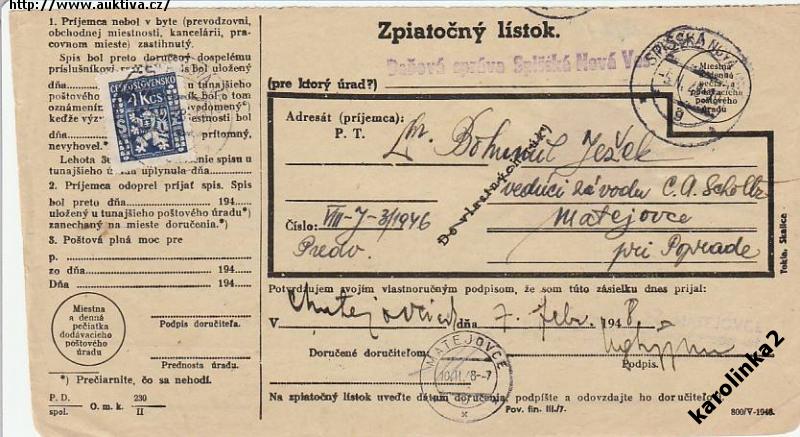 http://www.auktiva.cz/
1. Príjemca nebol v byte (prevodzovni,
obchodnej miestnosti, kancelárii, pra-
covnom mieste) zastihnutý.
Spis bol preto doručený dospelému
príslušníkovi
bol uložený
v tunajšom
poštového
bol o tom
oznámením
vedomený*)
keďže výz
dňa 194
prítomný,
nevyhovel.*)
Lehota
spisu u
tunajšieho úradu uplynula dňa
2. Príjemca odoprel prijať spis. Spis
bol preto dňa 194
uložený u tunajšieho poštového úradu*)
zanechaný na mieste doručenia.*)
3. Poštová plná moc pre
p.
zo dňa 194
Dňa 194
Miestna
a denná
pečiatka
dodávacieho
poštového
úradu
Podpis doručiteľa.
Prednosta úradu.
*) Prečiarnite, čo sa nehodí.
P. D. 230
spol. O. m. k. II
ČESKOSLOVENSKO
Kčs
Zpiatočný lístok.
Daňová správa Spišská Nová Ves
(pre ktorý úrad?)
SPIŠSKÁ NOVÁ
Miestna
a denná
pečiatka
dodávacieho
poštového
úradu
Adresát (príjemca):
P. T.
Bohumil Ježek
vedúci závodu C. A. Scholtz
Matejovce
pri Poprade
Do vlastných rúk!
Číslo: VIII-7-3/1946
Predv.
Tlač. Skalice
Potvrdzujem svojím vlastnoručným podpisom, že som túto zásielku dnes prijal:
V Matejovciach dňa 7. febr. 1948
MATEJOVCE
Doručené doručiteľom
Podpis.
MATEJOVCE
10.II.48-7
Na zpiatočný lístok uveďte dátum doručenia, podpíšte a odovzdajte ho doručiteľovi
Pov. fin. III./7.
800/V-1946.
karolinka2